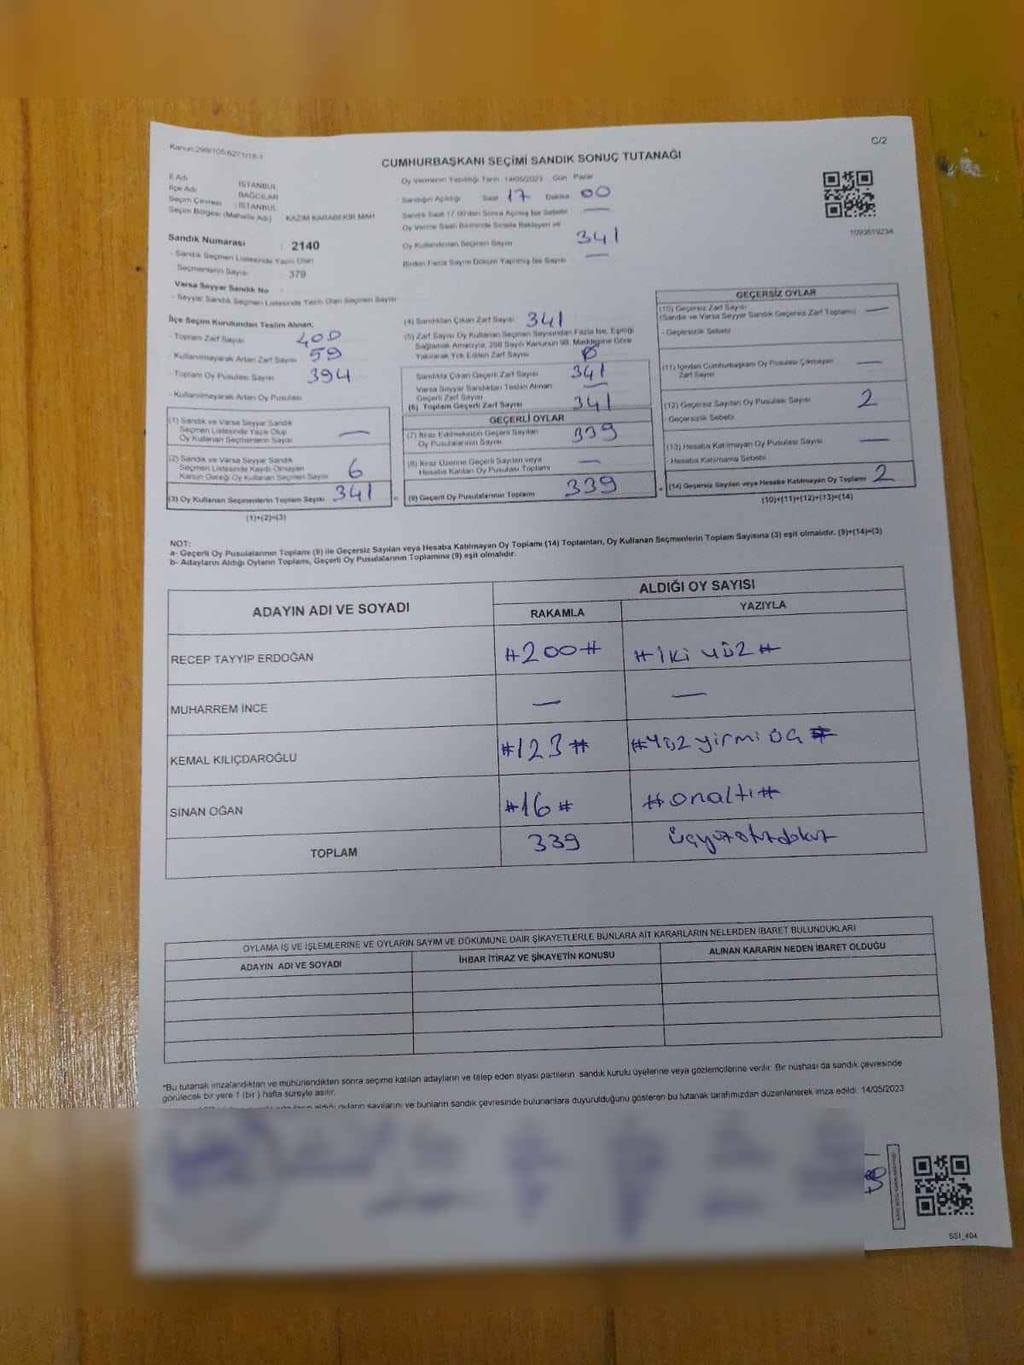 Kanun:298/105;6271/18-1
C/2
CUMHURBAŞKANI SEÇİMİ SANDIK SONUÇ TUTANAĞI
İl Adı : İSTANBUL
İlçe Adı : BAĞCILAR
Seçim Çevresi : İSTANBUL
Seçim Bölgesi (Mahalle Adı) : KAZIM KARABEKİR MAH.
Sandık Numarası : 2140
- Sandık Seçmen Listesinde Yazılı Olan
Seçmenlerin Sayısı : 379
Varsa Seyyar Sandık No :
- Seyyar Sandık Seçmen Listesinde Yazılı Olan Seçmen Sayısı
Oy Vermenin Yapıldığı Tarih : 14/05/2023 Gün : Pazar
Sandığın Açıldığı Saat 17 Dakika 00
Sandık Saat 17.00'den Sonra Açılmış İse Sebebi —
Oy Verme Saati Bitiminde Sırada Bekleyen ve
Oy Kullandırılan Seçmen Sayısı 341
Birden Fazla Sayım Döküm Yapılmış İse Sayısı —
1093619234
İlçe Seçim Kurulundan Teslim Alınan;
- Toplam Zarf Sayısı 400
- Kullanılmayarak Artan Zarf Sayısı 59
- Toplam Oy Pusulası Sayısı 394
- Kullanılmayarak Artan Oy Pusulası
(1) Sandık ve Varsa Seyyar Sandık
Seçmen Listesinde Yazılı Olup
Oy Kullanan Seçmenlerin Sayısı —
(2) Sandık ve Varsa Seyyar Sandık
Seçmen Listesinde Kaydı Olmayan
Kanun Gereği Oy Kullanan Seçmen Sayısı 6
(3) Oy Kullanan Seçmenlerin Toplam Sayısı 341
(1)+(2)=(3)
(4) Sandıktan Çıkan Zarf Sayısı 341
(5) Zarf Sayısı Oy Kullanan Seçmen Sayısından Fazla İse, Eşitliği
Sağlamak Amacıyla, 298 Sayılı Kanunun 98. Maddesine Göre
Yakılarak Yok Edilen Zarf Sayısı
Sandıkta Çıkan Geçerli Zarf Sayısı 341
Varsa Seyyar Sandıktan Teslim Alınan
Geçerli Zarf Sayısı —
(6) Toplam Geçerli Zarf Sayısı 341
GEÇERLİ OYLAR
(7) İtiraz Edilmeksizin Geçerli Sayılan
Oy Pusulalarının Sayısı 339
(8) İtiraz Üzerine Geçerli Sayılan veya
Hesaba Katılan Oy Pusulası Toplamı —
(9) Geçerli Oy Pusulalarının Toplamı 339
GEÇERSİZ OYLAR
(10) Geçersiz Zarf Sayısı
(Sandık ve Varsa Seyyar Sandık Geçersiz Zarf Toplamı) —
- Geçersizlik Sebebi
(11) İçinden Cumhurbaşkanı Oy Pusulası Çıkmayan
Zarf Sayısı —
(12) Geçersiz Sayılan Oy Pusulası Sayısı 2
- Geçersizlik Sebebi
(13) Hesaba Katılmayan Oy Pusulası Sayısı —
- Hesaba Katılmama Sebebi
(14) Geçersiz Sayılan veya Hesaba Katılmayan Oy Toplamı 2
(10)+(11)+(12)+(13)=(14)
NOT:
a- Geçerli Oy Pusulalarının Toplamı (9) ile Geçersiz Sayılan veya Hesaba Katılmayan Oy Toplamı (14) Toplamları, Oy Kullanan Seçmenlerin Toplam Sayısına (3) eşit olmalıdır. (9)+(14)=(3)
b- Adayların Aldığı Oyların Toplamı, Geçerli Oy Pusulalarının Toplamına (9) eşit olmalıdır.
ADAYIN ADI VE SOYADI
ALDIĞI OY SAYISI
RAKAMLA YAZIYLA
RECEP TAYYIP ERDOĞAN #200# #iki yüz#
MUHARREM İNCE — —
KEMAL KILIÇDAROĞLU #123# #yüz yirmi üç#
SİNAN OĞAN #16# #onaltı#
TOPLAM 339 üçyüzotuzdokuz
OYLAMA İŞ VE İŞLEMLERİNE VE OYLARIN SAYIM VE DÖKÜMÜNE DAİR ŞİKAYETLERLE BUNLARA AİT KARARLARIN NELERDEN İBARET BULUNDUKLARI
ADAYIN ADI VE SOYADI İHBAR İTİRAZ VE ŞİKAYETİN KONUSU ALINAN KARARIN NEDEN İBARET OLDUĞU
"Bu tutanak imzalandıktan ve mühürlendikten sonra seçime katılan adayların ve talep eden siyasi partilerin sandık kurulu üyelerine veya gözlemcilerine verilir. Bir nüshası da sandık çevresinde
görülecek bir yere 1 (bir) hafta süreyle asılır.
aldığı oyların sayılarını ve bunların sandık çevresinde bulunanlara duyurulduğunu gösteren bu tutanak tarafımızdan düzenlenerek imza edildi. 14/05/2023
SS1_404